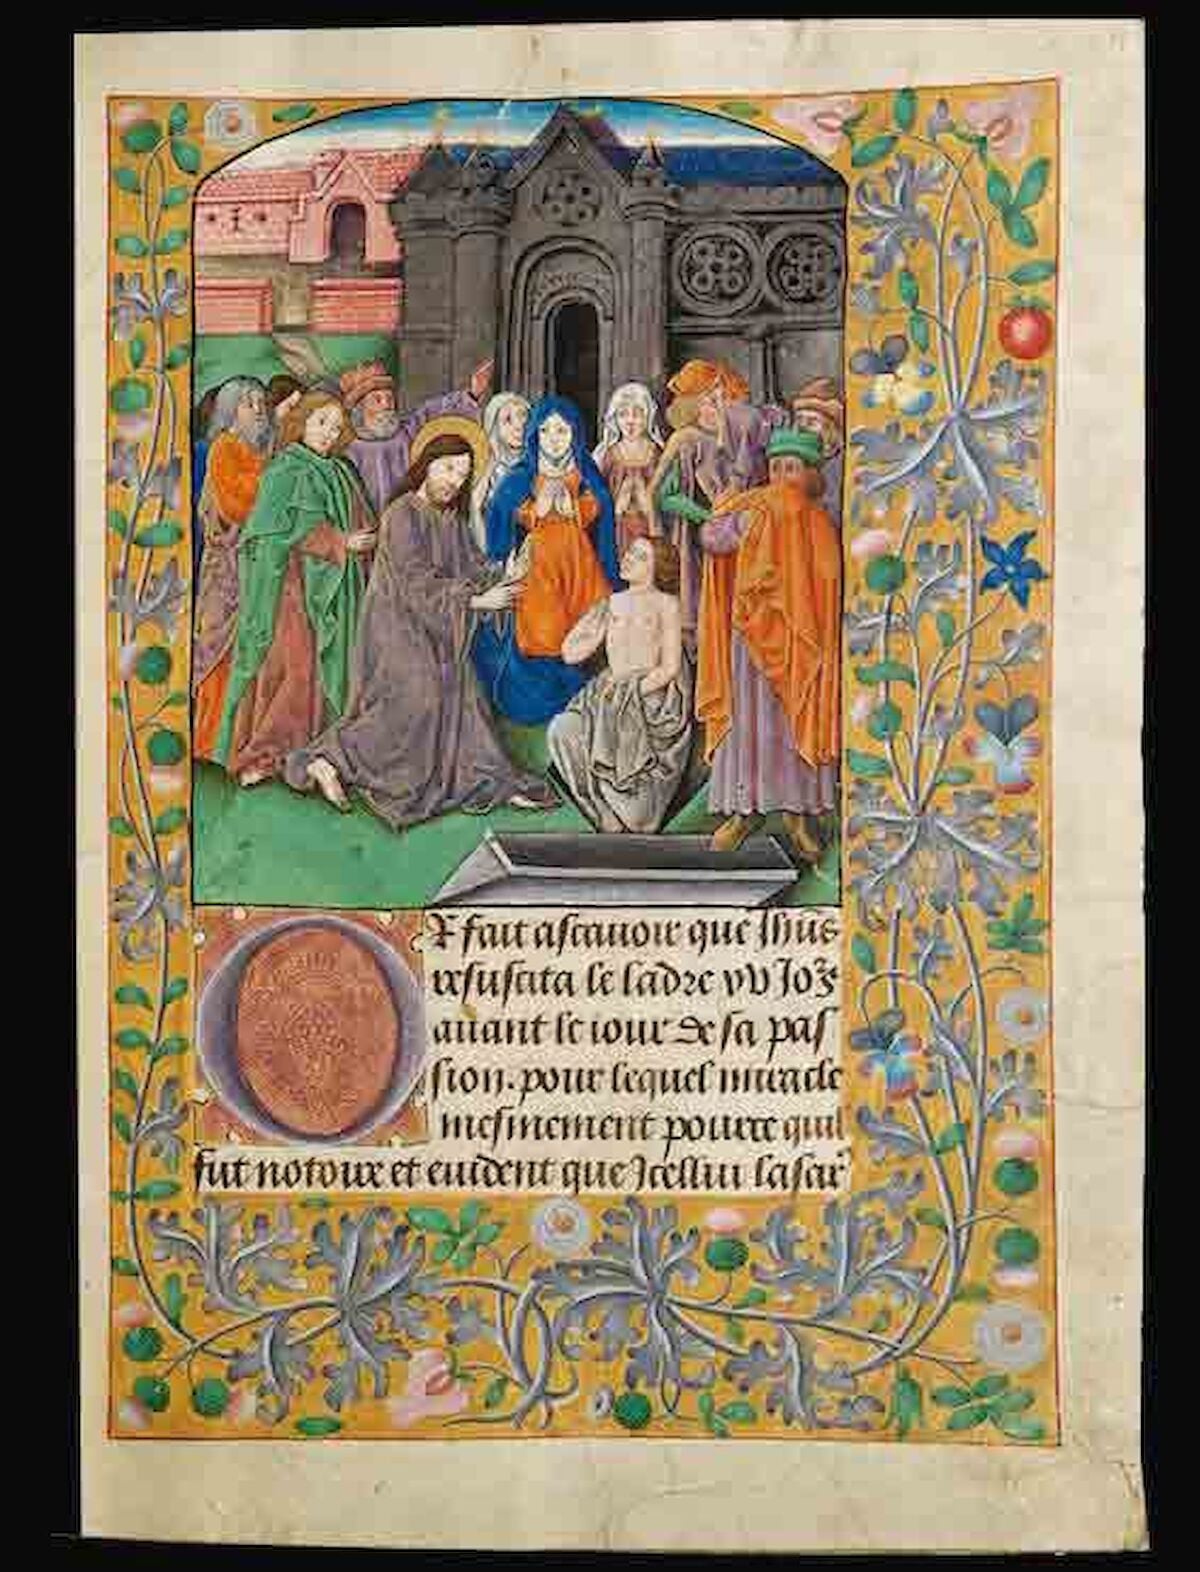 Or fait ascauoir que Jhūs
resuscita le ladre xv Jors
auant le iour de sa pas
sion. pour lequel miracle
mesmement pource quil
fut notoire et euident que Jcellui lasar